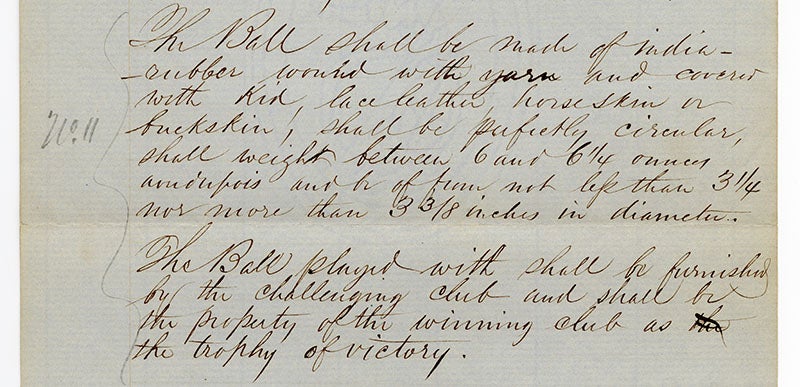 The Ball shall be made of india-
-rubber wound with yarn and covered
with Kid, lace leather, horse skin or
buckskin, shall be perfectly circular,
No. 11
shall weight between 6 and 6 1/4 ounces
avoirdupois and be of from not less than 3 1/4
nor more than 3 3/8 inches in diameter.
The Ball played with shall be furnished
by the challenging club and shall be
the property of the winning club as the
the trophy of victory.